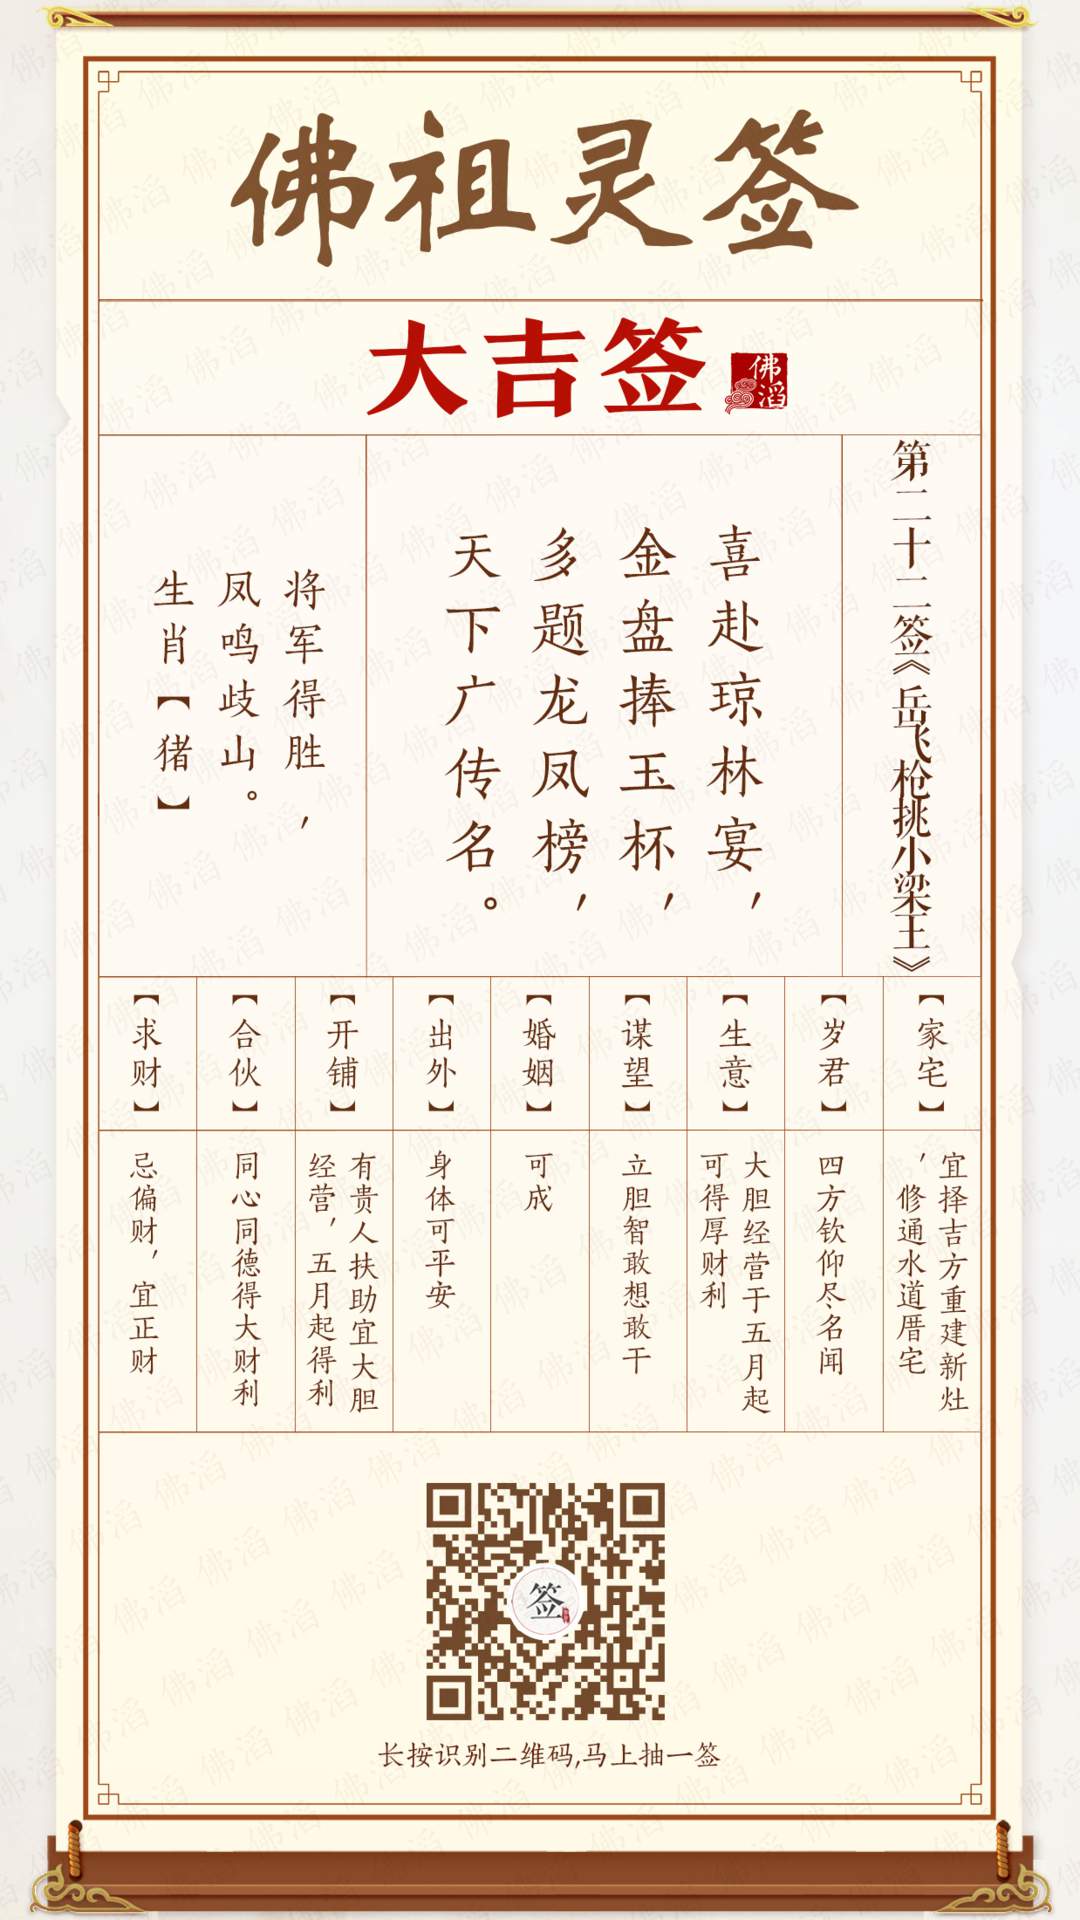 佛祖灵签
大吉签
佛滔
第二十二签《岳飞枪挑小梁王》
喜赴琼林宴，
金盘捧玉杯，
多题龙凤榜，
天下广传名。
将军得胜，
凤鸣歧山。
生肖【猪】
【家宅】
宜择吉方重建新灶
，修通水道厝宅
【岁君】
四方钦仰尽名闻
【生意】
大胆经营于五月起
可得厚财利
【谋望】
立胆智敢想敢干
【婚姻】
可成
【出外】
身体可平安
【开铺】
有贵人扶助宜大胆
经营，五月起得利
【合伙】
同心同德得大财利
【求财】
忌偏财，宜正财
签
长按识别二维码,马上抽一签